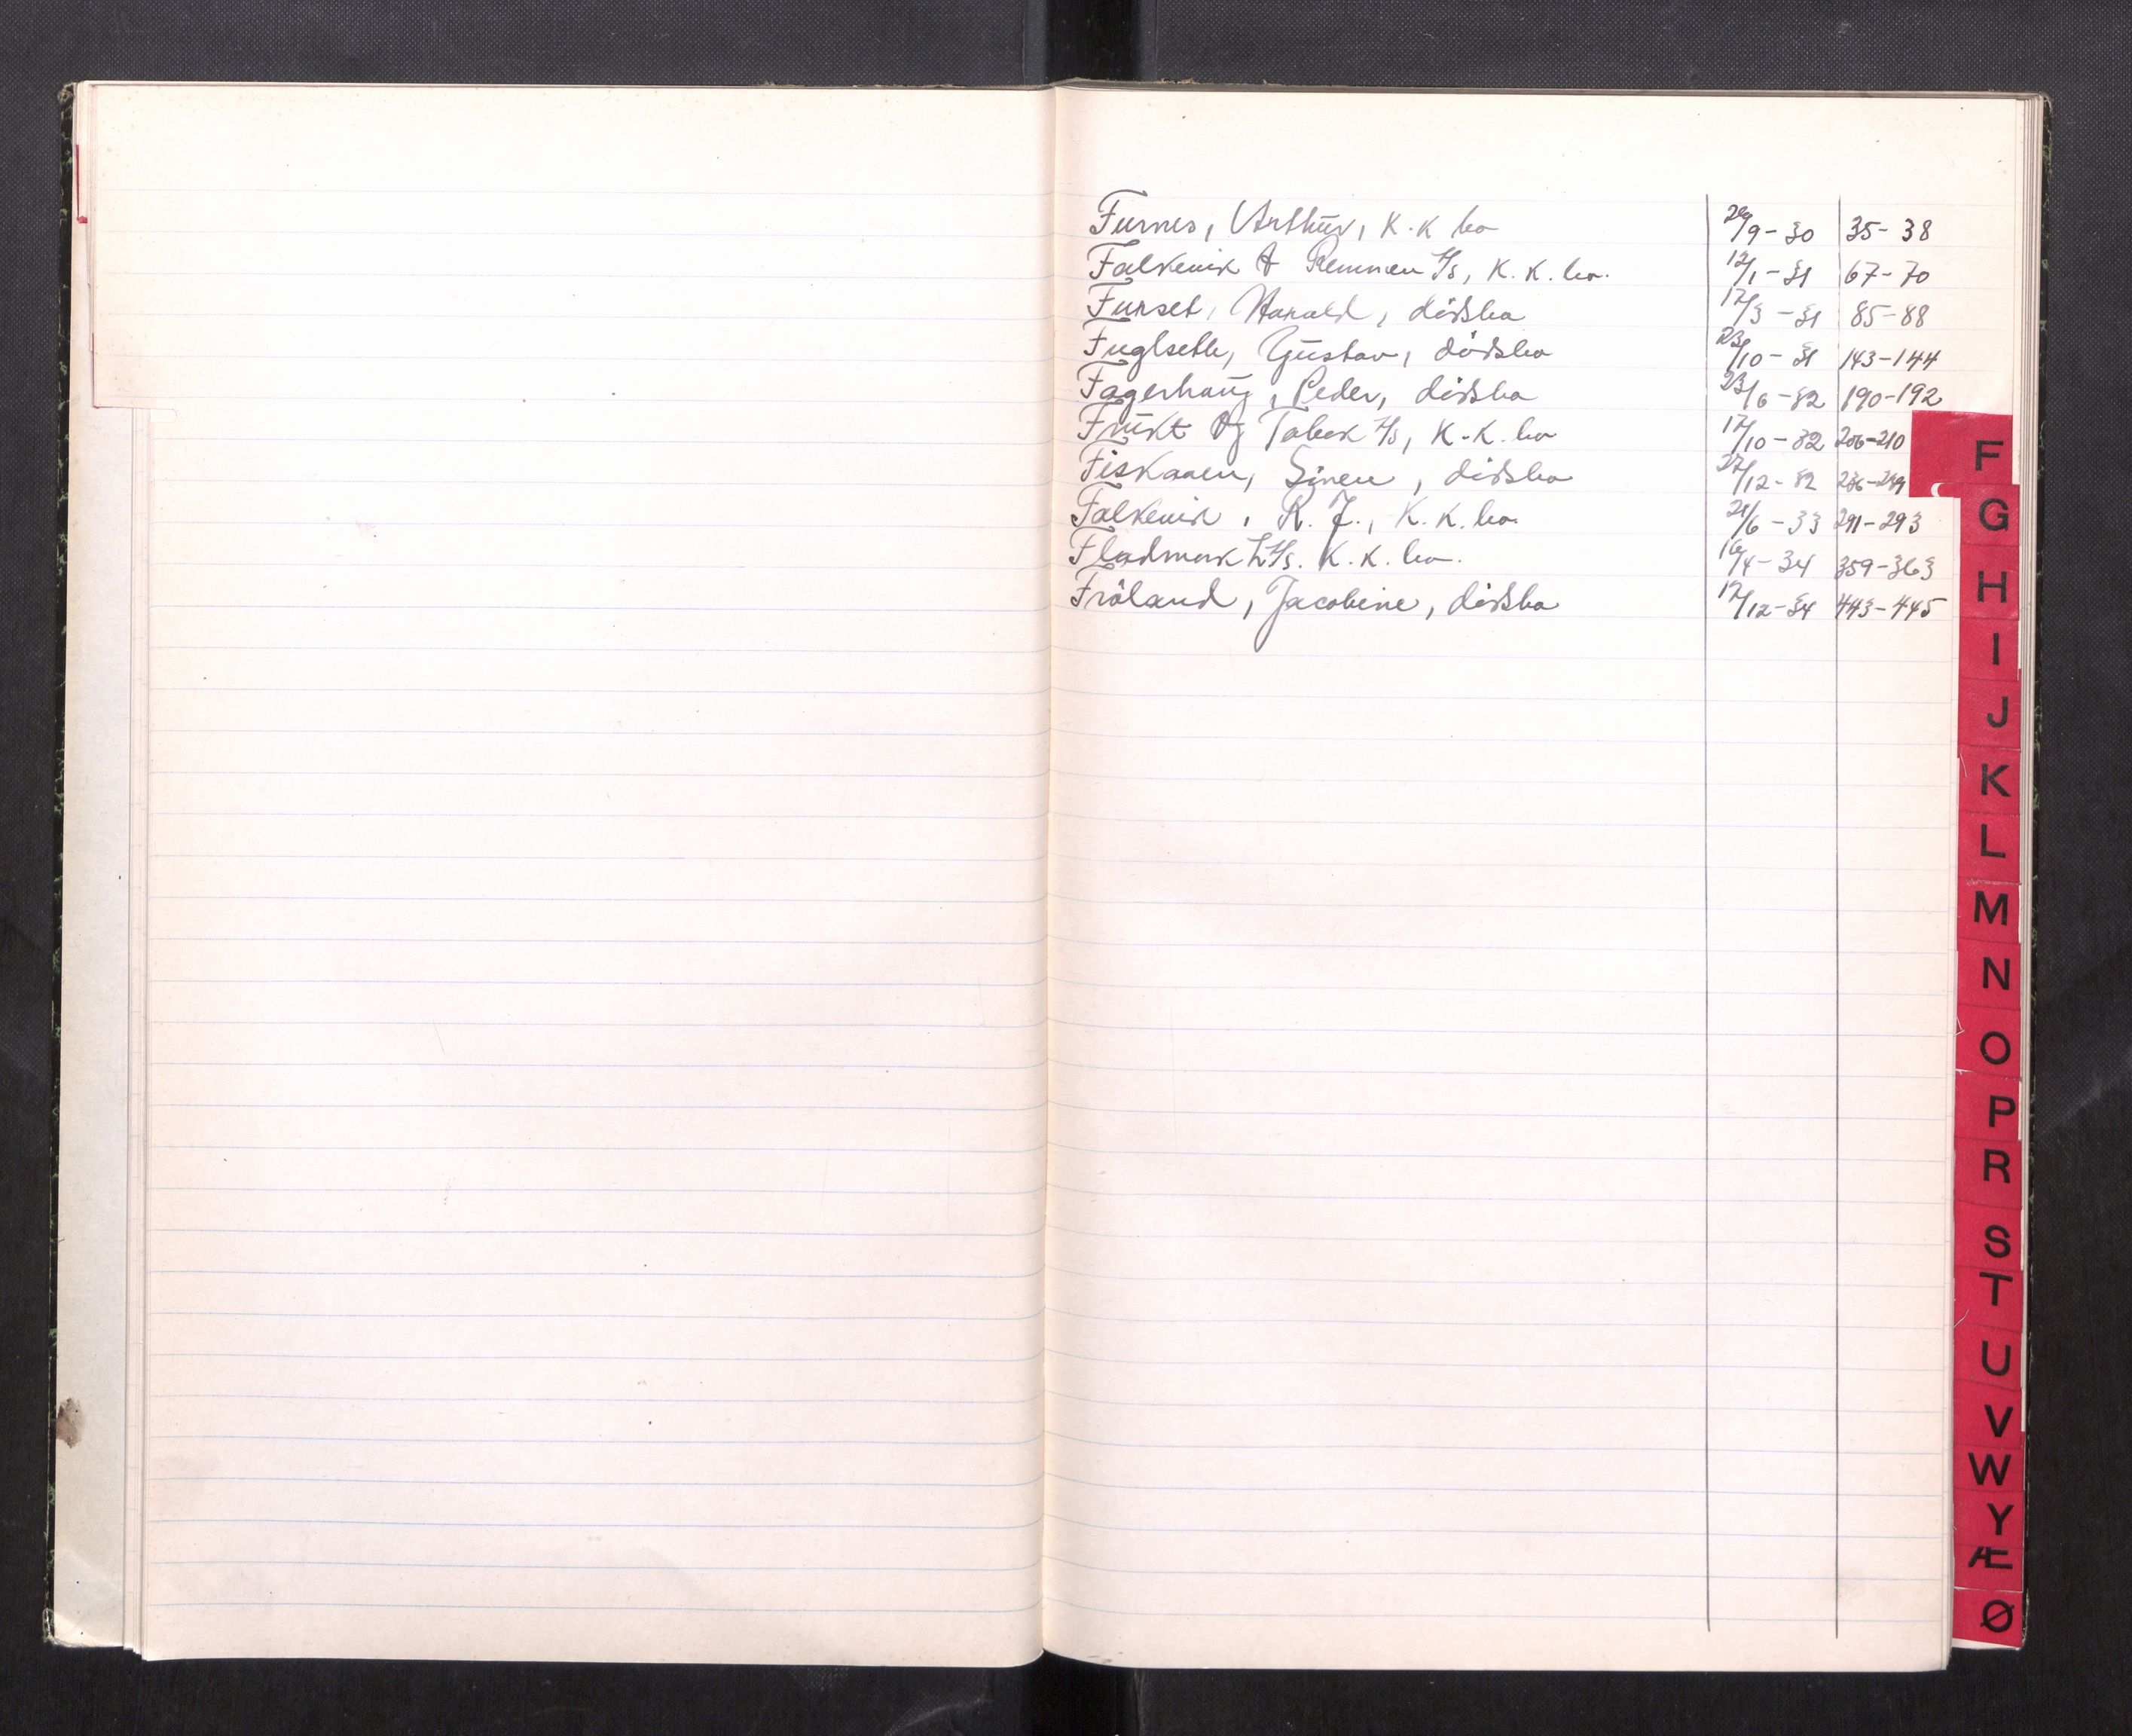 Furnes, Arthur, K.K bo 29/9-30 35-38
Falkevik & Remmen A/s, K.K.bo. 12/1-31 67-70
Furset, Harald, dödsbo 17/3-31 85-88
Fuglseth, Gustav, dödsbo 23/10-31 143-144
Fagerhaug, Peder, dödsbo 23/6-32 190-192
Frukt og Tabak A/s, K.K.bo 17/10-32 206-210
Fiskaaen, Sinen, dödsbo 27/12-32
Falkevik, R. J., K.K.bo. 21/6-33 291-293
Fladmark A/s. K.K.bo. 16/4-34 359-363
Fröland, Jacobine, dödsbo 17/12-34 443-445
F
G
H
I
J
K
L
M
N
O
P
R
S
T
U
V
W
Y
Æ
Ø